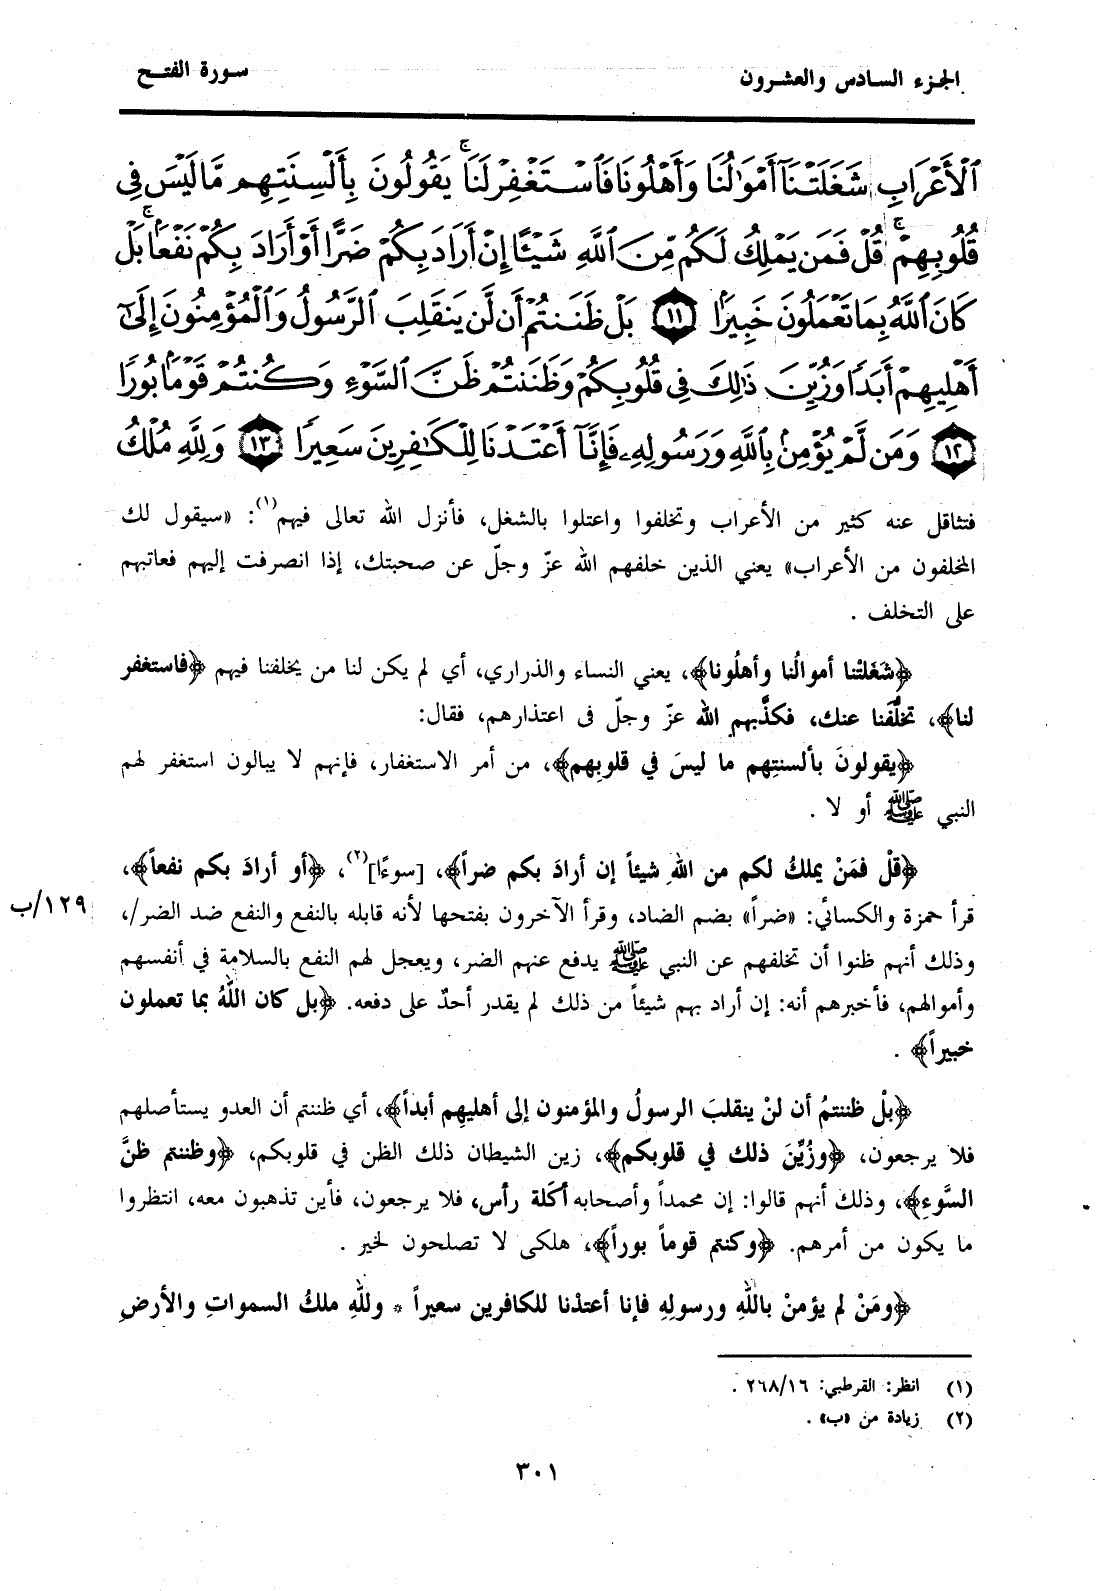 الجزء السادس والعشرون
سورة الفتح
ٱلْأَعْرَابِ شَغَلَتْنَآ أَمْوَٰلُنَا وَأَهْلُونَا فَٱسْتَغْفِرْ لَنَا ۚ يَقُولُونَ بِأَلْسِنَتِهِم مَّا لَيْسَ فِى
قُلُوبِهِمْ ۚ قُلْ فَمَن يَمْلِكُ لَكُم مِّنَ ٱللَّهِ شَيْـًٔا إِنْ أَرَادَ بِكُمْ ضَرًّا أَوْ أَرَادَ بِكُمْ نَفْعًۢا ۚ بَلْ
كَانَ ٱللَّهُ بِمَا تَعْمَلُونَ خَبِيرًۢا ١١ بَلْ ظَنَنتُمْ أَن لَّن يَنقَلِبَ ٱلرَّسُولُ وَٱلْمُؤْمِنُونَ إِلَىٰٓ
أَهْلِيهِمْ أَبَدًا وَزُيِّنَ ذَٰلِكَ فِى قُلُوبِكُمْ وَظَنَنتُمْ ظَنَّ ٱلسَّوْءِ وَكُنتُمْ قَوْمًۢا بُورًا
١٢ وَمَن لَّمْ يُؤْمِنۢ بِٱللَّهِ وَرَسُولِهِۦ فَإِنَّآ أَعْتَدْنَا لِلْكَٰفِرِينَ سَعِيرًا ١٣ وَلِلَّهِ مُلْكُ
فتثاقل عنه كثير من الأعراب وتخلفوا واعتلوا بالشغل، فأنزل الله تعالى فيهم(١): «سيقول لك
المخلفون من الأعراب» يعني الذين خلفهم الله عزّ وجلّ عن صحبتك، إذا انصرفت إليهم فعاتبهم
على التخلف .
﴿شَغَلتْنا أموالُنا وأهلُونا﴾، يعني النساء والذراري، أي لم يكن لنا من يخلفنا فيهم ﴿فاستغفر
لنا﴾، تخلُّفَنا عنك، فكذَّبهم الله عزّ وجلّ فى اعتذارهم، فقال:
﴿يقولونَ بألسنتِهم ما ليسَ في قلوبِهم﴾، من أمر الاستغفار، فإنهم لا يبالون استغفر لهم
النبي ﷺ أو لا .
﴿قلْ فمَنْ يملكُ لكم من اللهِ شيئاً إن أرادَ بكم ضراً﴾، [سوءًا](٢)، ﴿أو أرادَ بكم نفعاً﴾،
قرأ حمزة والكسائي: «ضراً» بضم الضاد، وقرأ الآخرون بفتحها لأنه قابله بالنفع والنفع ضد الضر/،
١٢٩/ب
وذلك أنهم ظنوا أن تخلفهم عن النبي ﷺ يدفع عنهم الضر، ويعجل لهم النفع بالسلامة في أنفسهم
وأموالهم، فأخبرهم أنه: إن أراد بهم شيئاً من ذلك لم يقدر أحدٌ على دفعه. ﴿بل كان اللهُ بما تعملون
خبيراً﴾ .
﴿بلْ ظننتمُ أن لنْ ينقلبَ الرسولُ والمؤمنون إلى أهليهم أبداً﴾، أي ظننتم أن العدو يستأصلهم
فلا يرجعون، ﴿وزُيِّنَ ذلك في قلوبكم﴾، زين الشيطان ذلك الظن في قلوبكم، ﴿وظننتم ظنَّ
السَّوءِ﴾، وذلك أنهم قالوا: إن محمداً وأصحابه أكَلة رأس، فلا يرجعون، فأين تذهبون معه، انتظروا
ما يكون من أمرهم. ﴿وكنتم قوماً بوراً﴾، هلكى لا تصلحون لخير .
﴿ومَنْ لم يؤمنْ باللهِ ورسولِهِ فإنا أعتدْنا للكافرين سعيراً * وللهِ ملكُ السمواتِ والأرضِ
(١) انظر: القرطبي: ٢٦٨/١٦ .
(٢) زيادة من «ب» .
٣٠١